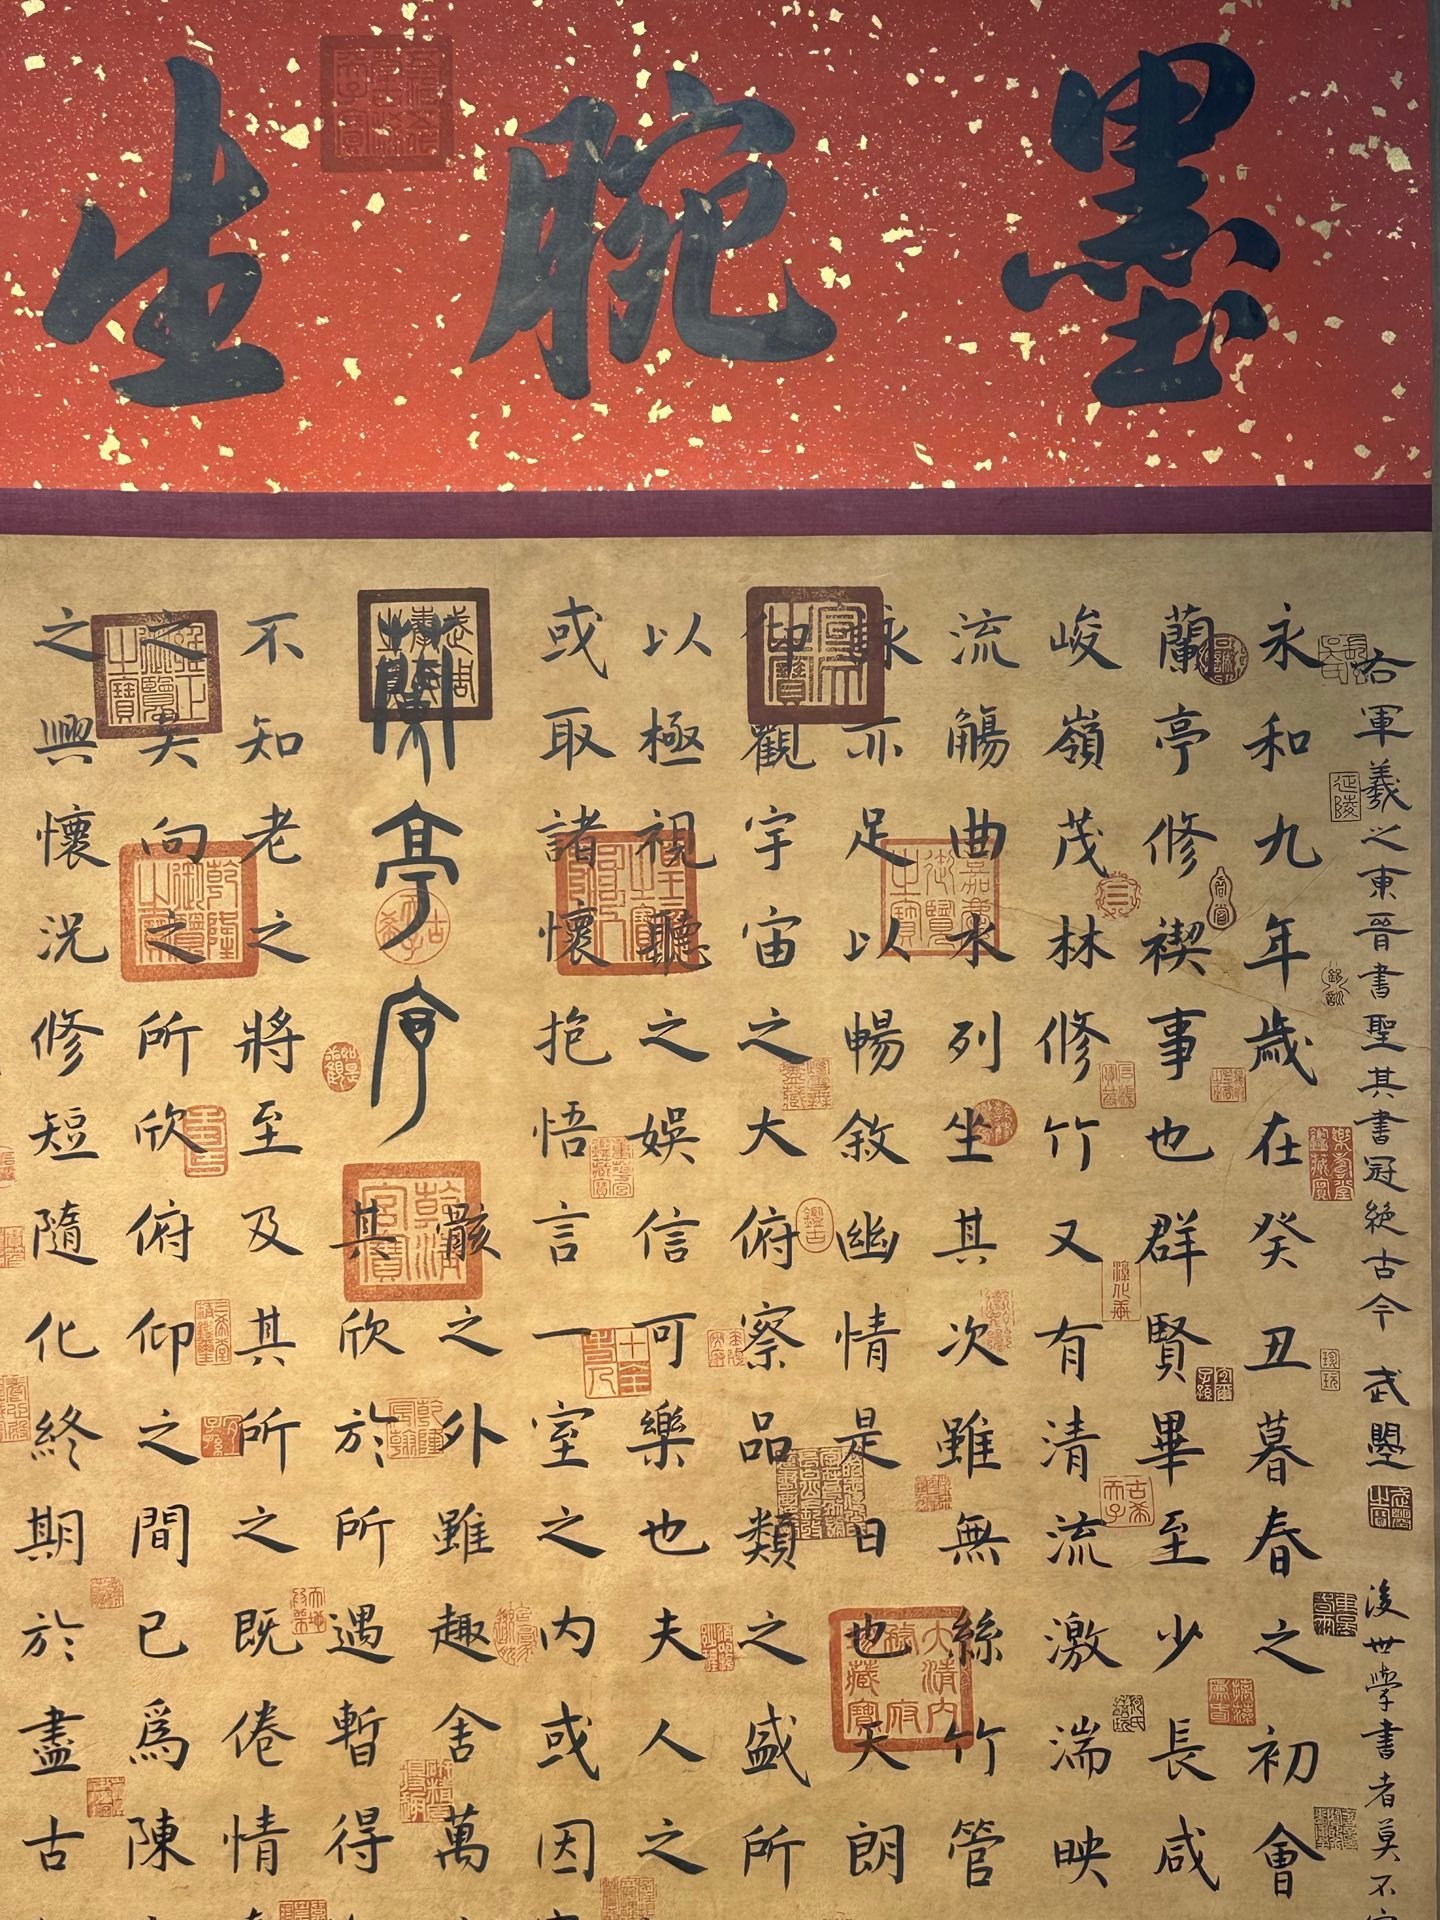 墨腕生
右軍羲之東晉書聖其書冠絶古今 武曌
後世學書者莫不
永和九年歲在癸丑暮春之初會
蘭亭修禊事也群賢畢至少長咸
峻嶺茂林修竹又有清流激湍映
流觴曲水列坐其次雖無絲竹管
詠亦足以暢敘幽情是日也天朗
仰觀宇宙之大俯察品類之盛所
以極視聽之娛信可樂也夫人之
或取諸懷抱悟言一室之內或因
蘭亭序
骸之外雖趣舍萬
其欣於所遇暫得
不知老之將至及其所之既倦情
之矣向之所欣俯仰之間已爲陳
之興懷況修短隨化終期於盡古
嘉慶御覽之寶
乾隆御覽之寶
延陵